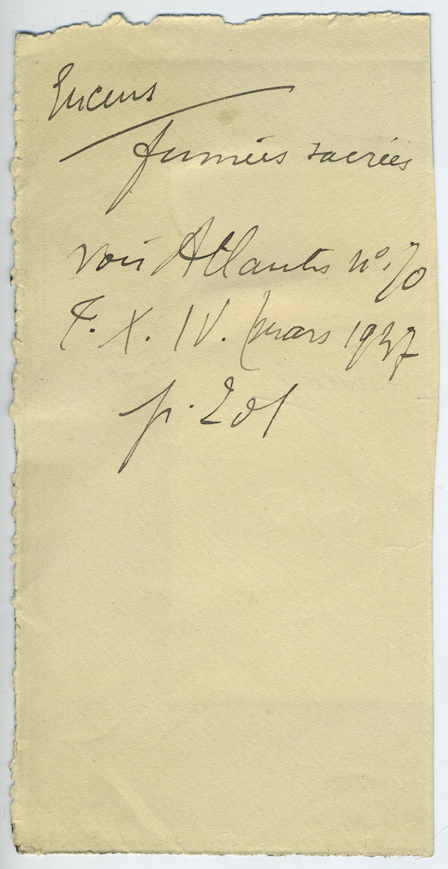 Encens
fumées sacrées
voir Atlantis n° 70
T. X. IV. (mars 1937
p. 201